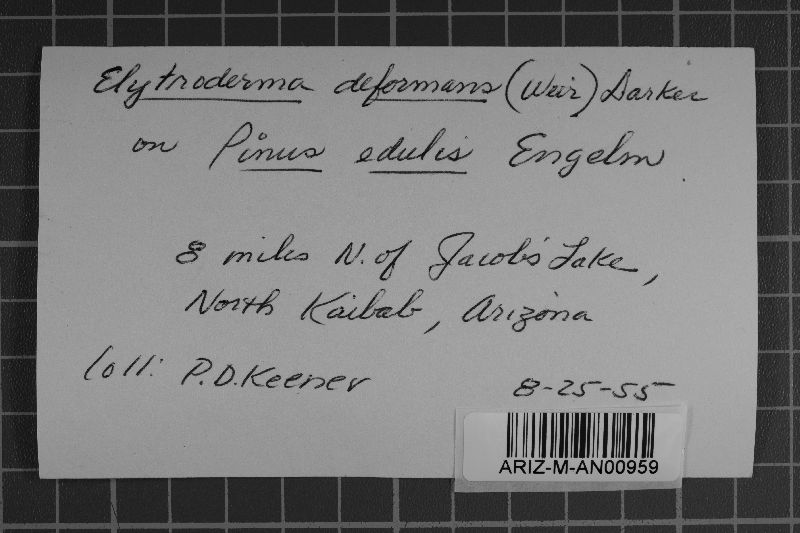 Elytroderma deformans (Weir) Darker
on Pinus edulis Engelm
8 miles N. of Jacobs' Lake,
North Kaibab, Arizona
Coll: P.D. Keener 8-25-55
ARIZ-M-AN00959